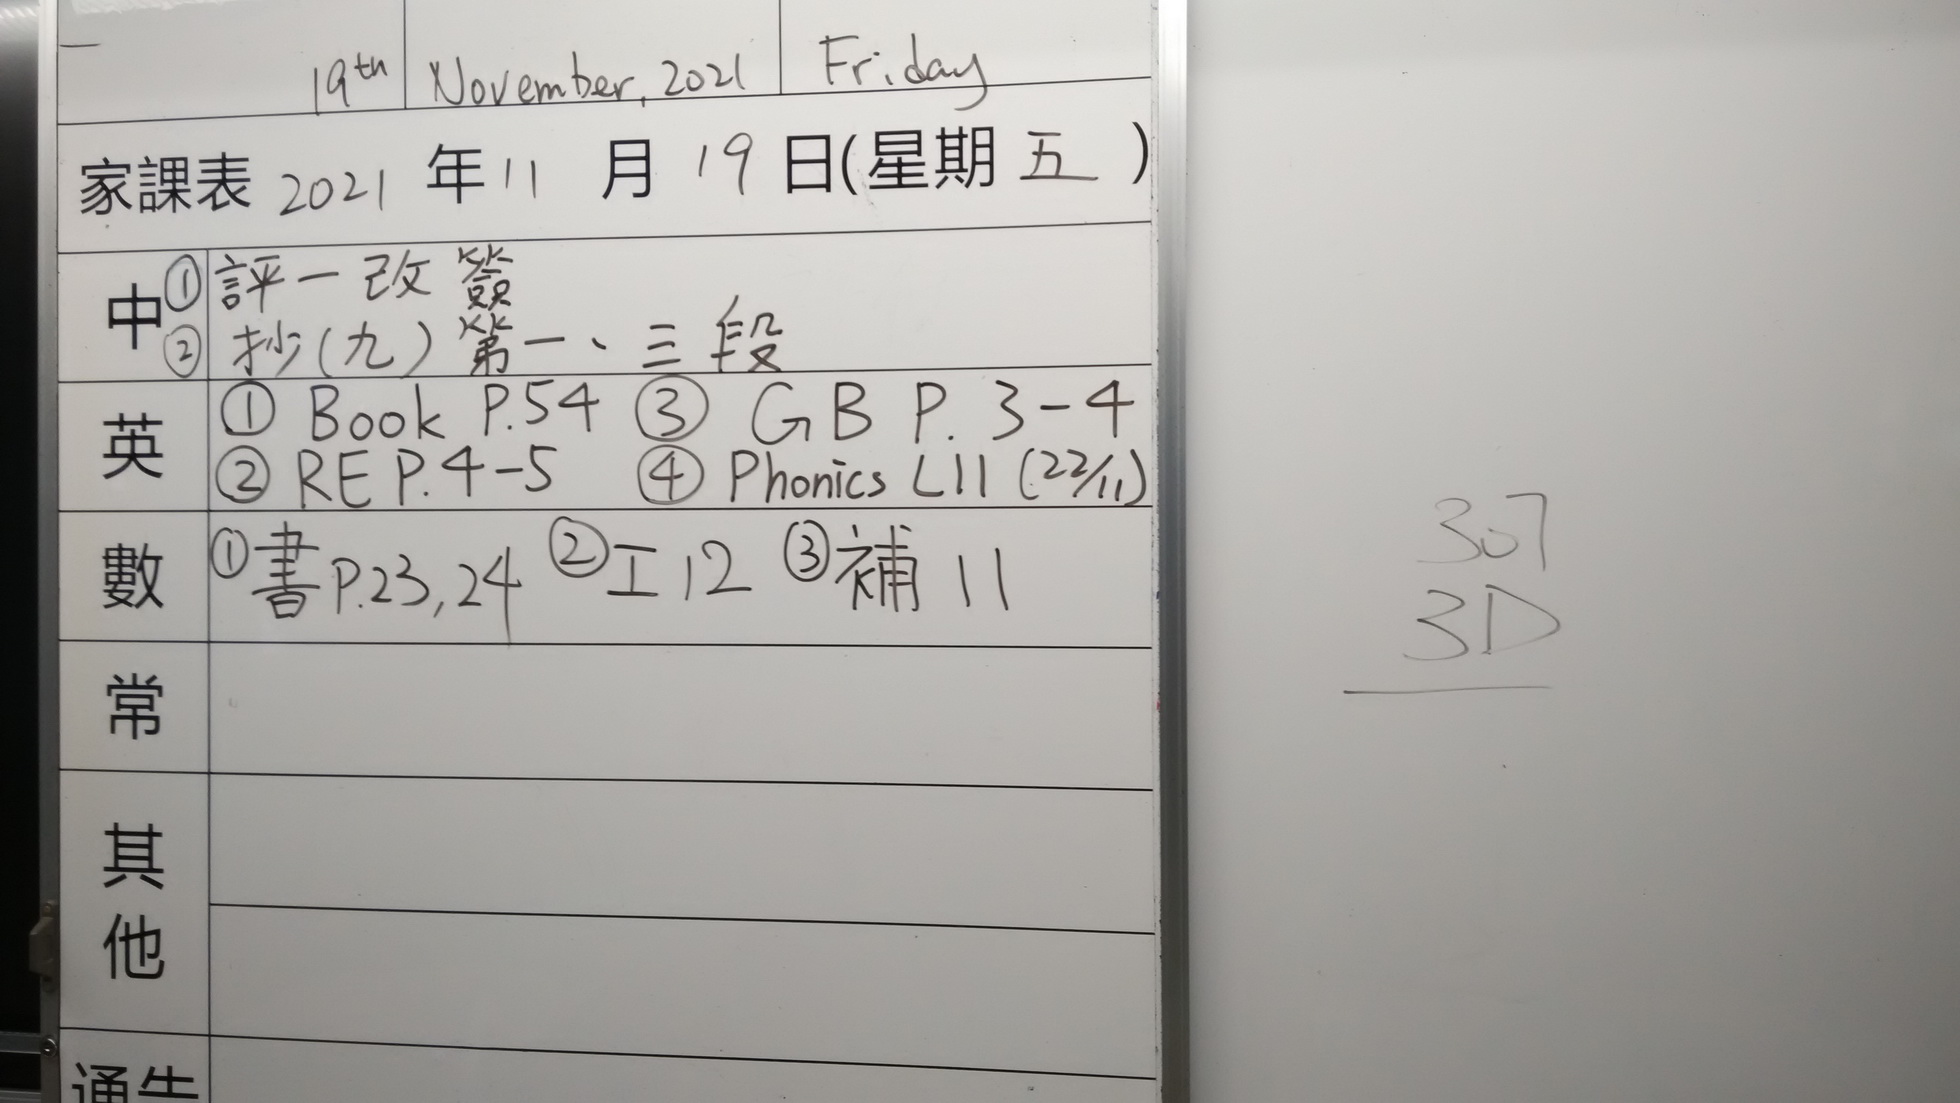 19th November, 2021 Friday
家課表 2021 年 11 月 19 日(星期 五 )
中 ① 評一改 簽
② 抄(九) 第一、三段
英 ① Book P.54 ③ GB P. 3-4
② RE P.4-5 ④ Phonics L11 (22/11)
數 ① 書 P.23,24 ② 工 12 ③ 補 11
常
其他
通告
307
3D